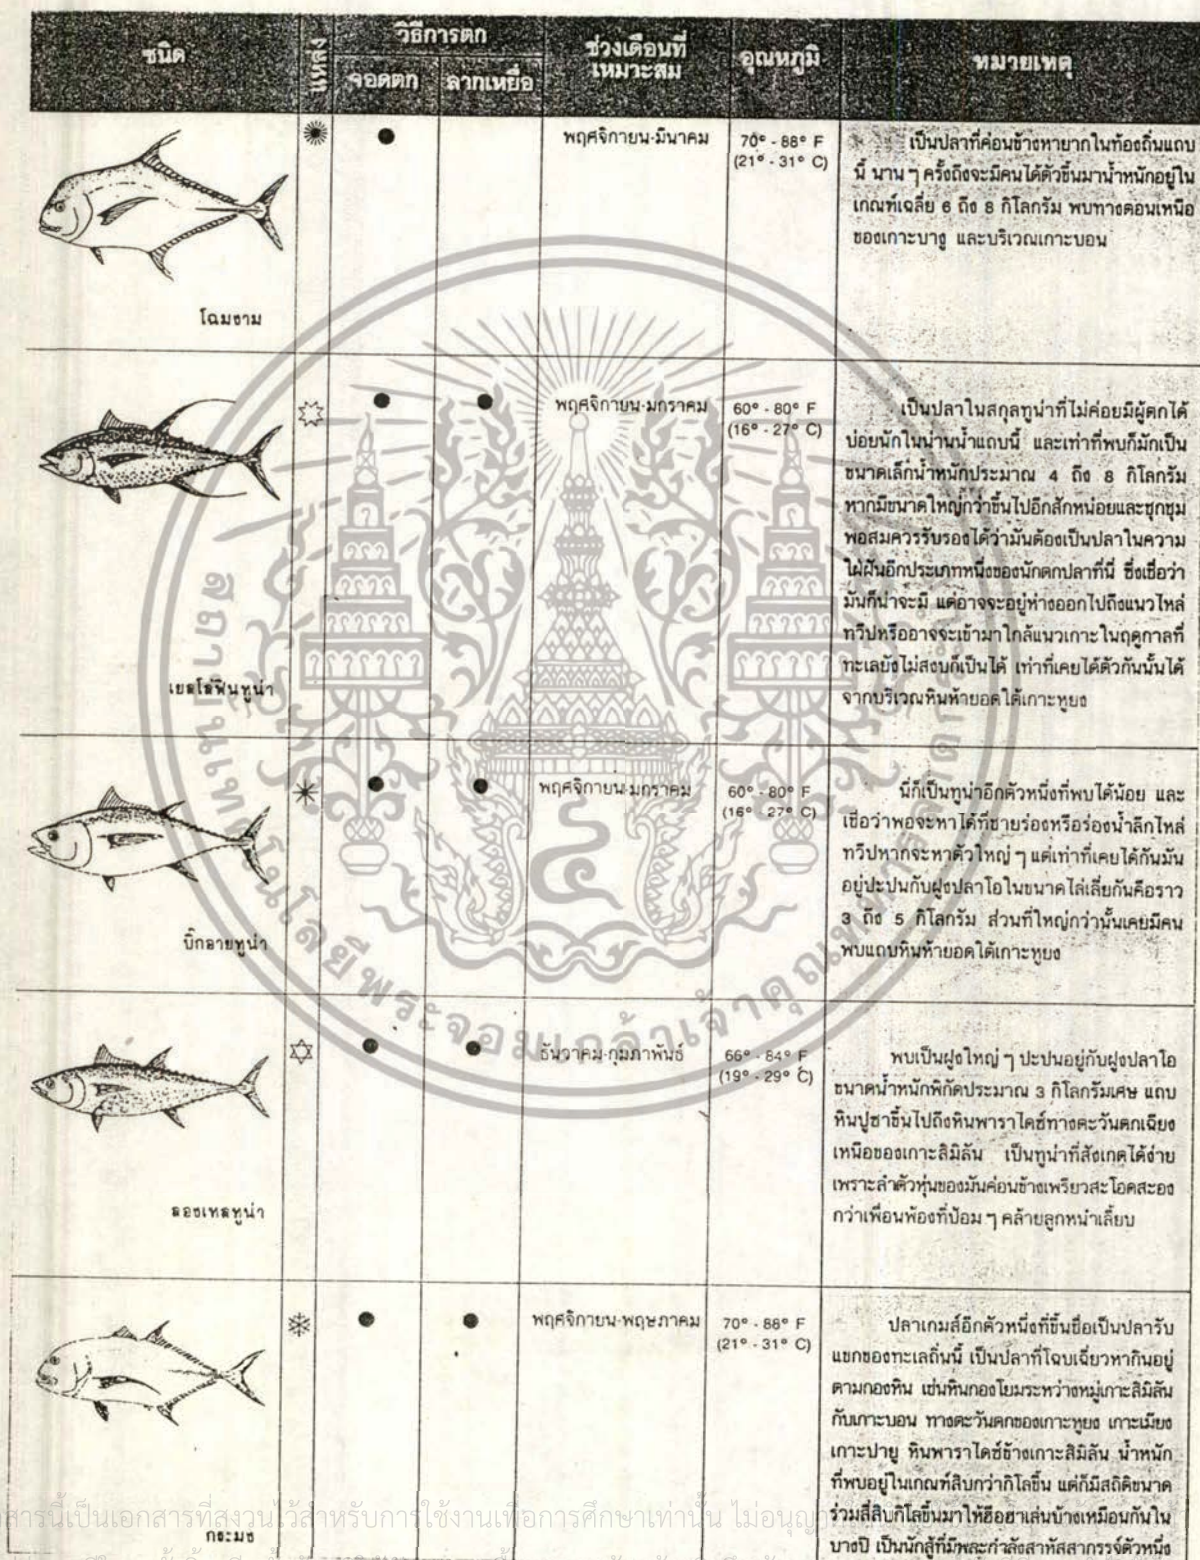 ชนิด
แหล่ง
วิธีการตก
จอดตก
ลากเหยื่อ
ช่วงเดือนที่
เหมาะสม
อุณหภูมิ
หมายเหตุ
โฉมงาม
พฤศจิกายน-มีนาคม
70° - 88° F
(21° - 31° C)
เป็นปลาที่ค่อนข้างหายากในท้องถิ่นแถบ
นี้ นาน ๆ ครั้งถึงจะมีคนได้ตัวขึ้นมาน้ำหนักอยู่ใน
เกณฑ์เฉลี่ย 6 ถึง 8 กิโลกรัม พบทางตอนเหนือ
ของเกาะบางู และบริเวณเกาะบอน
เยลโล่ฟินทูน่า
พฤศจิกายน-มกราคม
60° - 80° F
(16° - 27° C)
เป็นปลาในสกุลทูน่าที่ไม่ค่อยมีผู้ตกได้
บ่อยนักในน่านน้ำแถบนี้ และเท่าที่พบก็มักเป็น
ขนาดเล็กน้ำหนักประมาณ 4 ถึง 8 กิโลกรัม
หากมีขนาดใหญ่กว่าขึ้นไปอีกสักหน่อยและชุกชุม
พอสมควรรับรองได้ว่ามันต้องเป็นปลาในความ
ใฝ่ฝันอีกประเภทหนึ่งของนักตกปลาที่นี่ ซึ่งเชื่อว่า
มันก็น่าจะมี แต่อาจจะอยู่ห่างออกไปถึงแนวไหล่
ทวีปหรืออาจจะเข้ามาใกล้แนวเกาะในฤดูกาลที่
ทะเลยังไม่สงบก็เป็นได้ เท่าที่เคยได้ตัวกันนั้นได้
จากบริเวณหินห้ายอดใต้เกาะหูยง
บิ๊กอายทูน่า
พฤศจิกายน-มกราคม
60° - 80° F
(16° - 27° C)
นี่ก็เป็นทูน่าอีกตัวหนึ่งที่พบได้น้อย และ
เชื่อว่าพอจะหาได้ที่ชายร่องหรือร่องน้ำลึกไหล่
ทวีปหากจะหาตัวใหญ่ ๆ แต่เท่าที่เคยได้กันมัน
อยู่ปะปนกับฝูงปลาโอในขนาดไล่เลี่ยกันคือราว
3 ถึง 5 กิโลกรัม ส่วนที่ใหญ่กว่านั้นเคยมีคน
พบแถบหินห้ายอดใต้เกาะหูยง
ลองเทลทูน่า
ธันวาคม-กุมภาพันธ์
66° - 84° F
(19° - 29° C)
พบเป็นฝูงใหญ่ ๆ ปะปนอยู่กับฝูงปลาโอ
ขนาดน้ำหนักพิกัดประมาณ 3 กิโลกรัมเศษ แถบ
หินปูซาขึ้นไปถึงหินพาราไดซ์ทางตะวันตกเฉียง
เหนือของเกาะสิมิลัน เป็นทูน่าที่สังเกตได้ง่าย
เพราะลำตัวหุ่นของมันค่อนข้างเพรียวสะโอดสะอง
กว่าเพื่อนพ้องที่ป้อม ๆ คล้ายลูกหนำเลี้ยบ
กะมง
พฤศจิกายน-พฤษภาคม
70° - 88° F
(21° - 31° C)
ปลาเกมส์อีกตัวหนึ่งที่ขึ้นชื่อเป็นปลารับ
แขกของทะเลถิ่นนี้ เป็นปลาที่โฉบเฉี่ยวหากินอยู่
ตามกองหิน เช่นหินกองโยมระหว่างหมู่เกาะสิมิลัน
กับเกาะบอน ทางตะวันตกของเกาะหูยง เกาะเมียง
เกาะปายู หินพาราไดซ์ข้างเกาะสิมิลัน น้ำหนัก
ที่พบอยู่ในเกณฑ์สิบกว่ากิโลขึ้น แต่ก็มีสถิติขนาด
ร่วมสี่สิบกิโลขึ้นมาให้ฮือฮาเล่นบ้างเหมือนกันใน
บางปี เป็นนักสู้ที่มีพละกำลังสาหัสสากรรจ์ตัวหนึ่ง
สถาบันเทคโนโลยีพระจอมเกล้าเจ้าคุณทหารลาดกระบัง
สารนี้เป็นเอกสารที่สงวนไว้สำหรับการใช้งานเพื่อการศึกษาเท่านั้น ไม่อนุญา